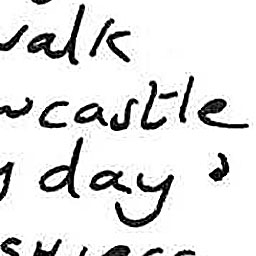 walk
wcastle
y day,